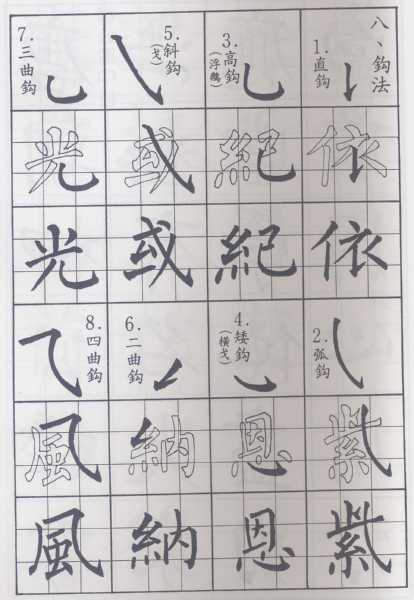 八、鈎法
1.直鈎
依
依
3.高鈎
(浮鵝)
紀
紀
5.斜鈎
(戈)
或
或
7.三曲鈎
光
光
2.弧鈎
紫
紫
4.矮鈎
(橫戈)
恩
恩
6.二曲鈎
納
納
8.四曲鈎
風
風